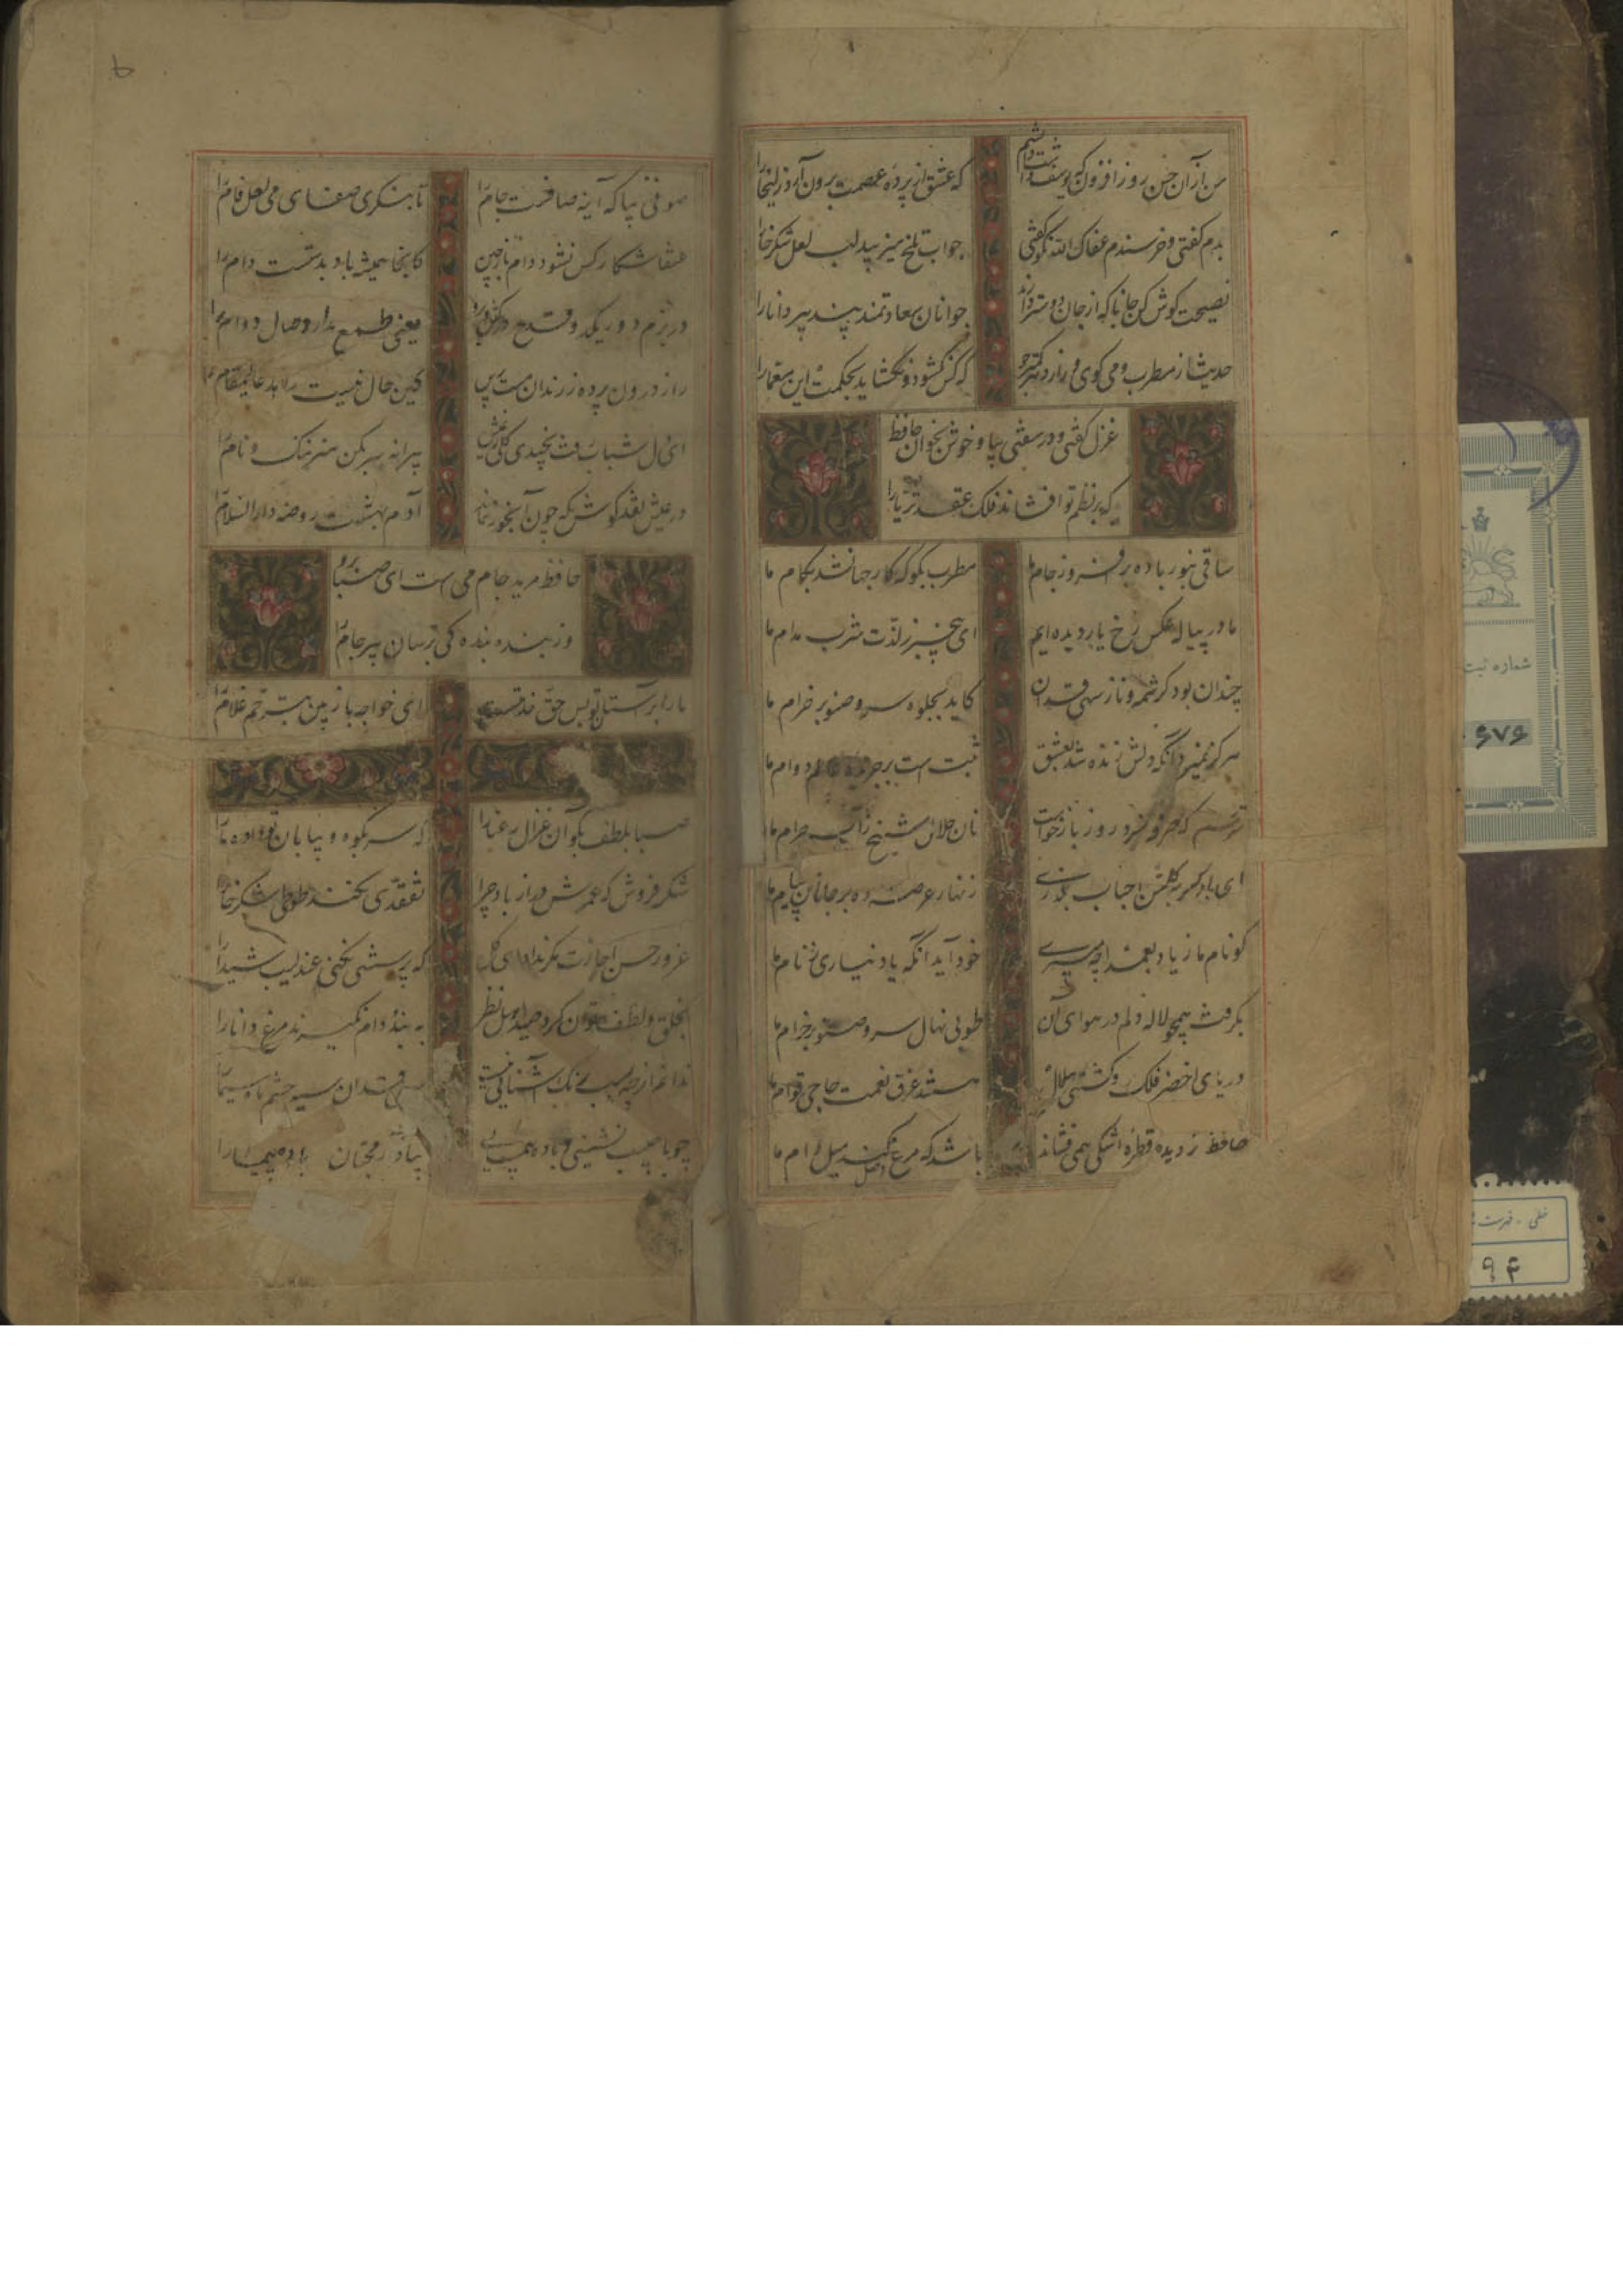 من از آن حسن روز افزون که یوسف داشت دانستم
که عشق از پرده عصمت برون آرد زلیخا را
بدم گفتی و خرسندم عفاک الله نکو گفتی
جواب تلخ میزیبد لب لعل شکرخا را
نصیحت گوش کن جانا که از جان دوستر دارند
جوانان سعادتمند پند پیر دانا را
حدیث از مطرب و می گوی و راز دهر کمتر جو
که کس نگشود و نگشاید بحکمت این معما را
غزل گفتی و در سفتی بیا و خوش بخوان حافظ
که بر نظم تو افشاند فلک عقد ثریا را
ساقی بنور باده برافروز جام ما
مطرب بگو که کار جهان شد بکام ما
ما در پیاله عکس رخ یار دیده ایم
ای بیخبر ز لذت شرب مدام ما
چندان بود کرشمه و ناز سهی قدان
کاید بجلوه سرو صنوبر خرام ما
هرگز نمیرد آنکه دلش زنده شد بعشق
ثبت است بر جریده عالم دوام ما
ترسم که صرفه نبرد روز بازخواست
نان حلال شیخ ز آب حرام ما
ای باد اگر بگلشن احباب بگذری
زنهار عرضه ده بر جانان پیام ما
گو نام ما ز یاد بعمدا چه میبری
خود آید آنکه یاد نیاری ز نام ما
بگرفت همچو لاله دلم در هوای آن
طوبی نهال سرو صنوبر خرام ما
دریای اخضر فلک و کشتی هلال
هستند غرق نعمت حاجی قوام ما
حافظ ز دیده قطره اشکی همی فشاند
باشد که مرغ وصل کند میل دام ما
صوفی بیا که آینه صافیست جام را
تا بنگری صفای می لعل فام را
عنقا شکار کس نشود دام باز چین
کانجا همیشه باد بدست است دام را
در بزم دور یکدو قدح درکش و برو
یعنی طمع مدار وصال دوام را
راز درون پرده ز رندان مست پرس
کین حال نیست زاهد عالیمقام را
ای دل شباب رفت نچیدی گلی ز عیش
پیرانه سر بکن هنر ننگ و نام را
در عیش نقد کوش که چون آبخور نماند
آدم بهشت روضه دارالسلام را
حافظ مرید جام می است ای صبا برو
وز بنده بندگی برسان پیر جام را
ما را بر آستان تو بس حق خدمتست
ای خواجه باز بین بترحم غلام را
صبا بلطف بگو آن غزال رعنا را
که سر بکوه و بیابان تو داده ما را
شکر فروش که عمرش دراز باد چرا
تفقدی نکند طوطی شکرخا را
غرور حسن اجازت مگر نداد ای گل
که پرسشی نکنی عندلیب شیدا را
بخلق و لطف توان کرد صید اهل نظر
به بند و دام نگیرند مرغ دانا را
ندانم از چه سبب رنگ آشنایی نیست
سهی قدان سیه چشم ماه سیما را
چو با حبیب نشینی و باده پیمایی
بیاد آر محبان باده پیما را
شماره ثبت
۶۷۶
خطی - فهرست
۹۴